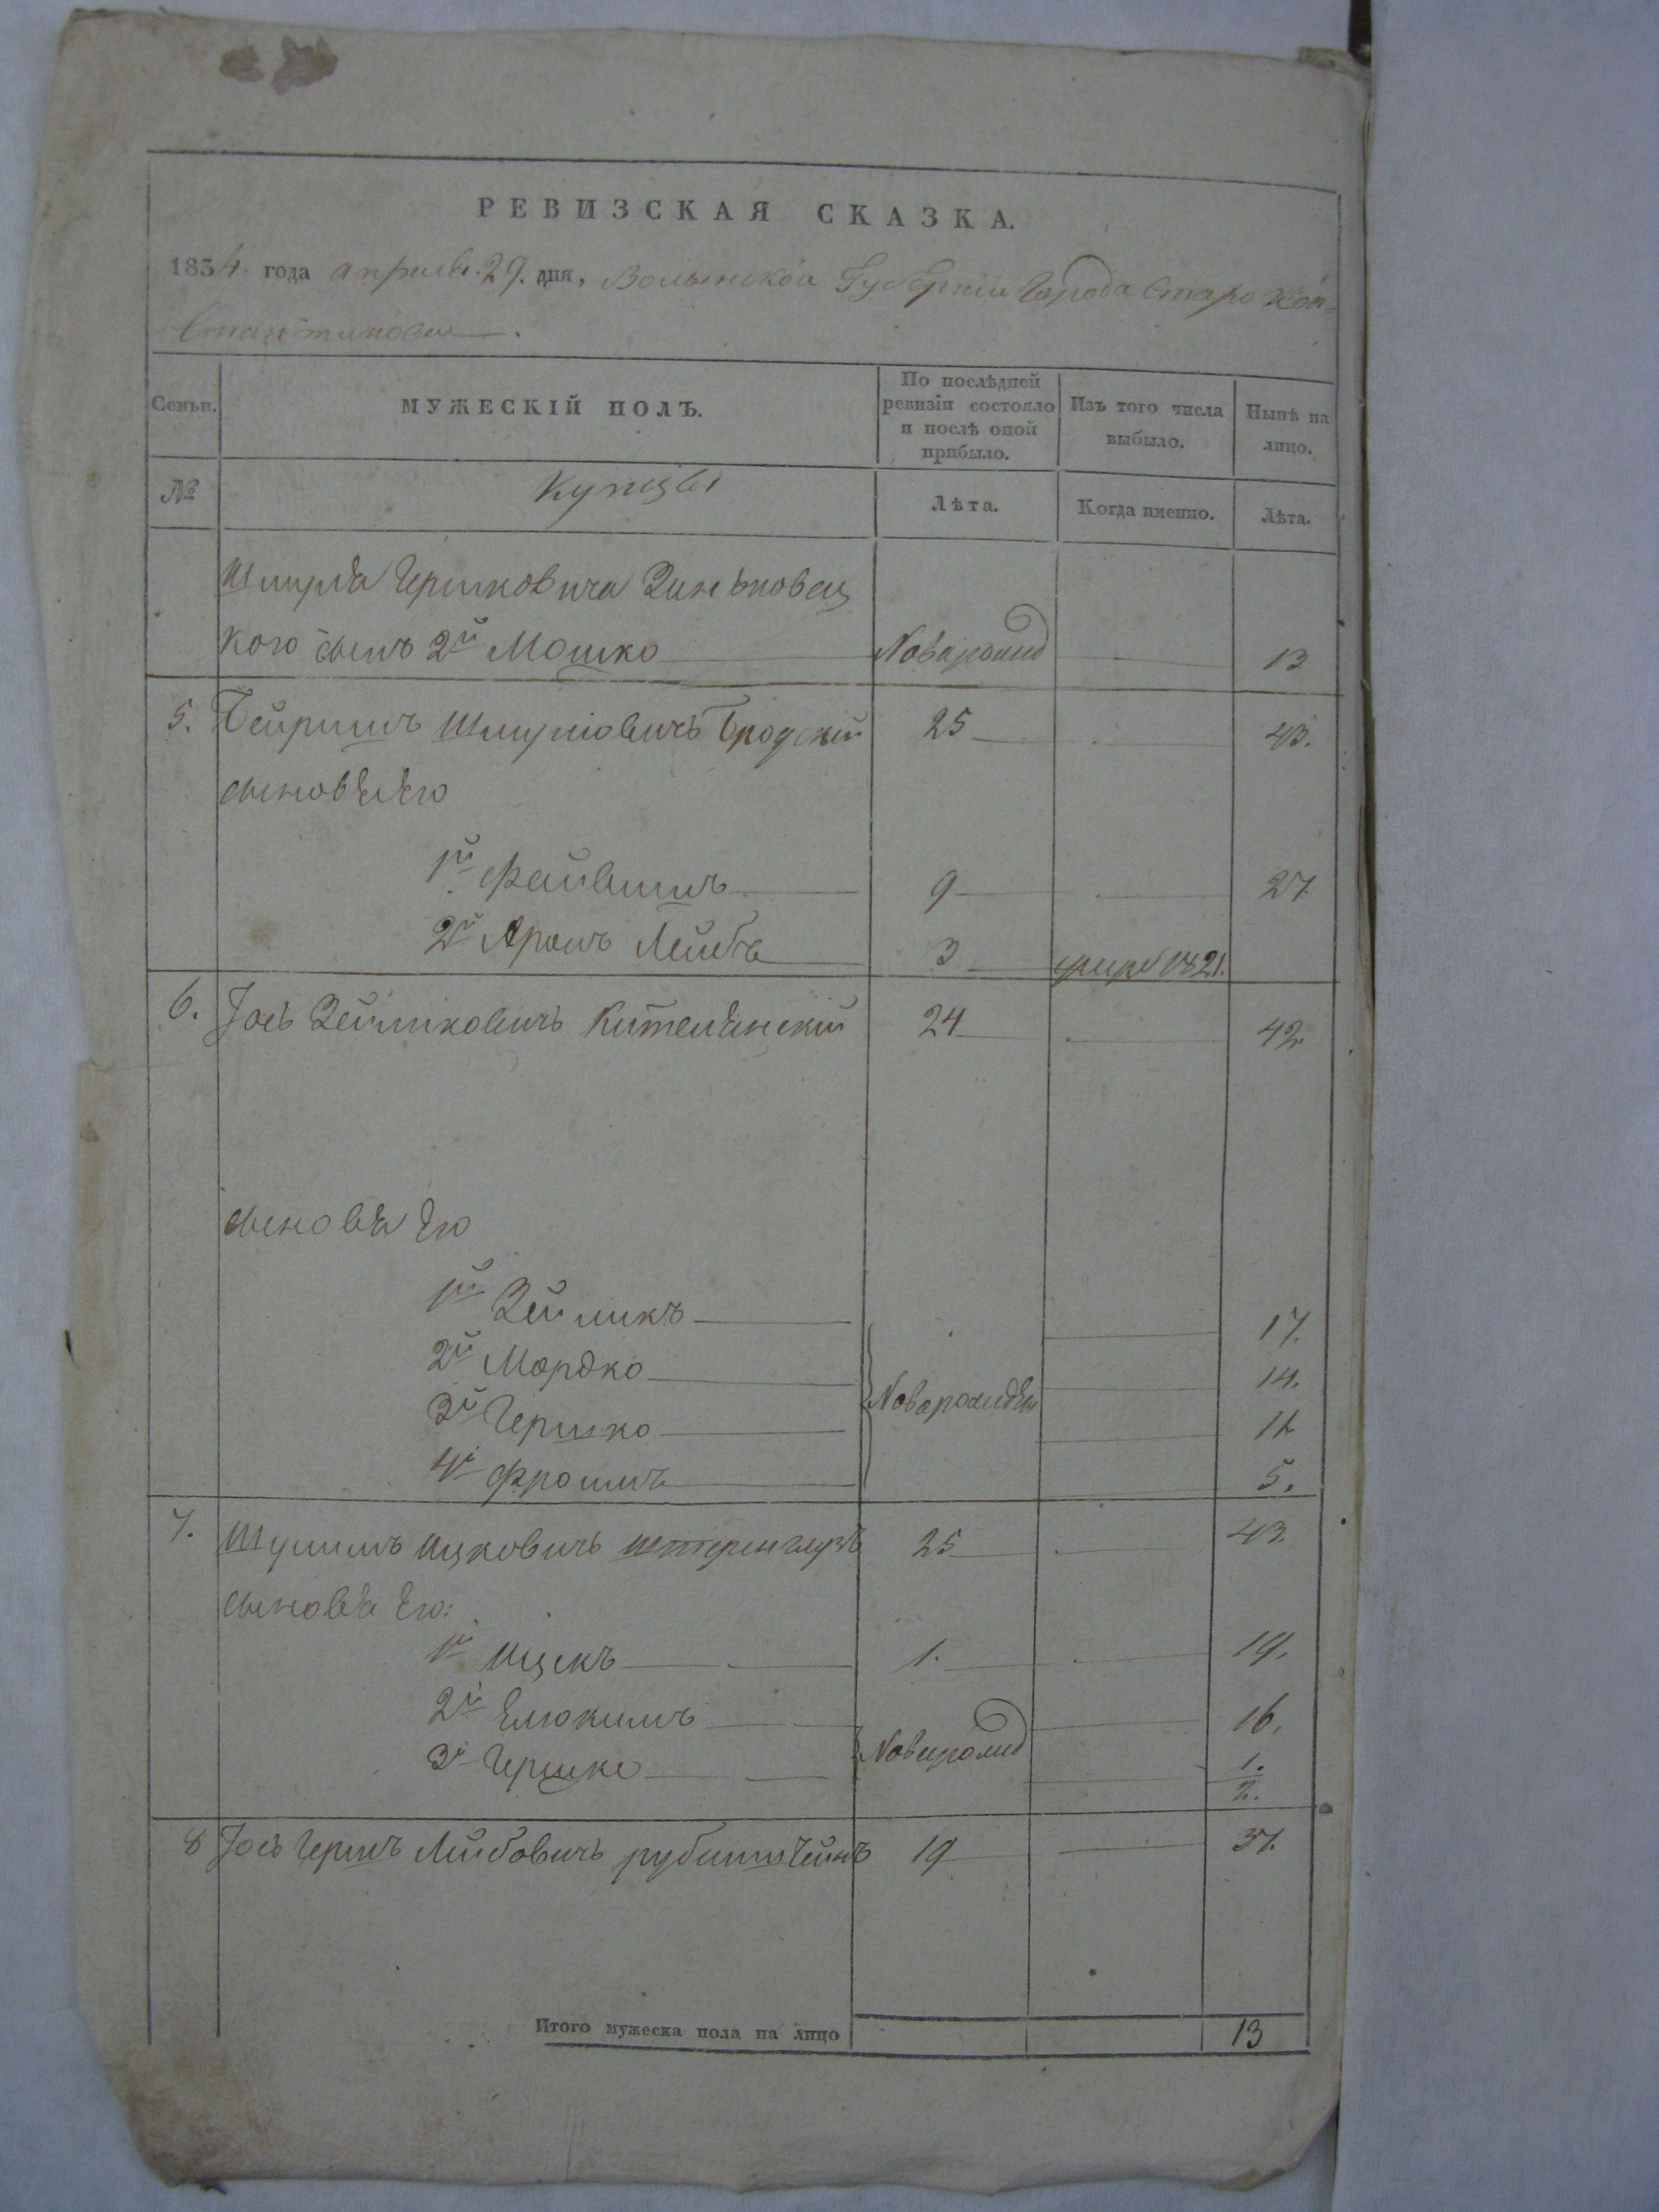 РЕВИЗСКАЯ СКАЗКА.
1834. года апреля 29. дня, Волынской Губерніи Города Старо Кон=
стантинова.
Семьи. МУЖЕСКІЙ ПОЛЪ. По послѣдней ревизіи состояло и послѣ оной прибыло. Изъ того числа выбыло. Нынѣ на лицо.
№ Купцы Лѣта. Когда именно. Лѣта.
Шмуля Гершковича Зиньковец
кого сынъ 2й Мошко Новорожд 13
5. Бейришъ Шмуліовичъ Бродскій 25 43.
сыновья Его
1й Файвишъ 9 27.
2й Аронъ Лейба 3 умеръ 1821.
6. Іось Зейликовичъ 24 42.
сыновья Его
1й Зейликъ 17.
2й Мордко 14.
3й Гершко Новорожден 11
4й Фроимъ 5.
7. Шулимъ Ицковичъ Штеренгарзъ 25 43.
сыновья Его:
1й Ицекъ 1. 19.
2й Елюкимъ 16.
3й Гершко Новорожд 1/2.
8 Іось Гершъ Лейбовичъ рубинштейнъ 19 37.
Итого мужеска пола на лицо 13